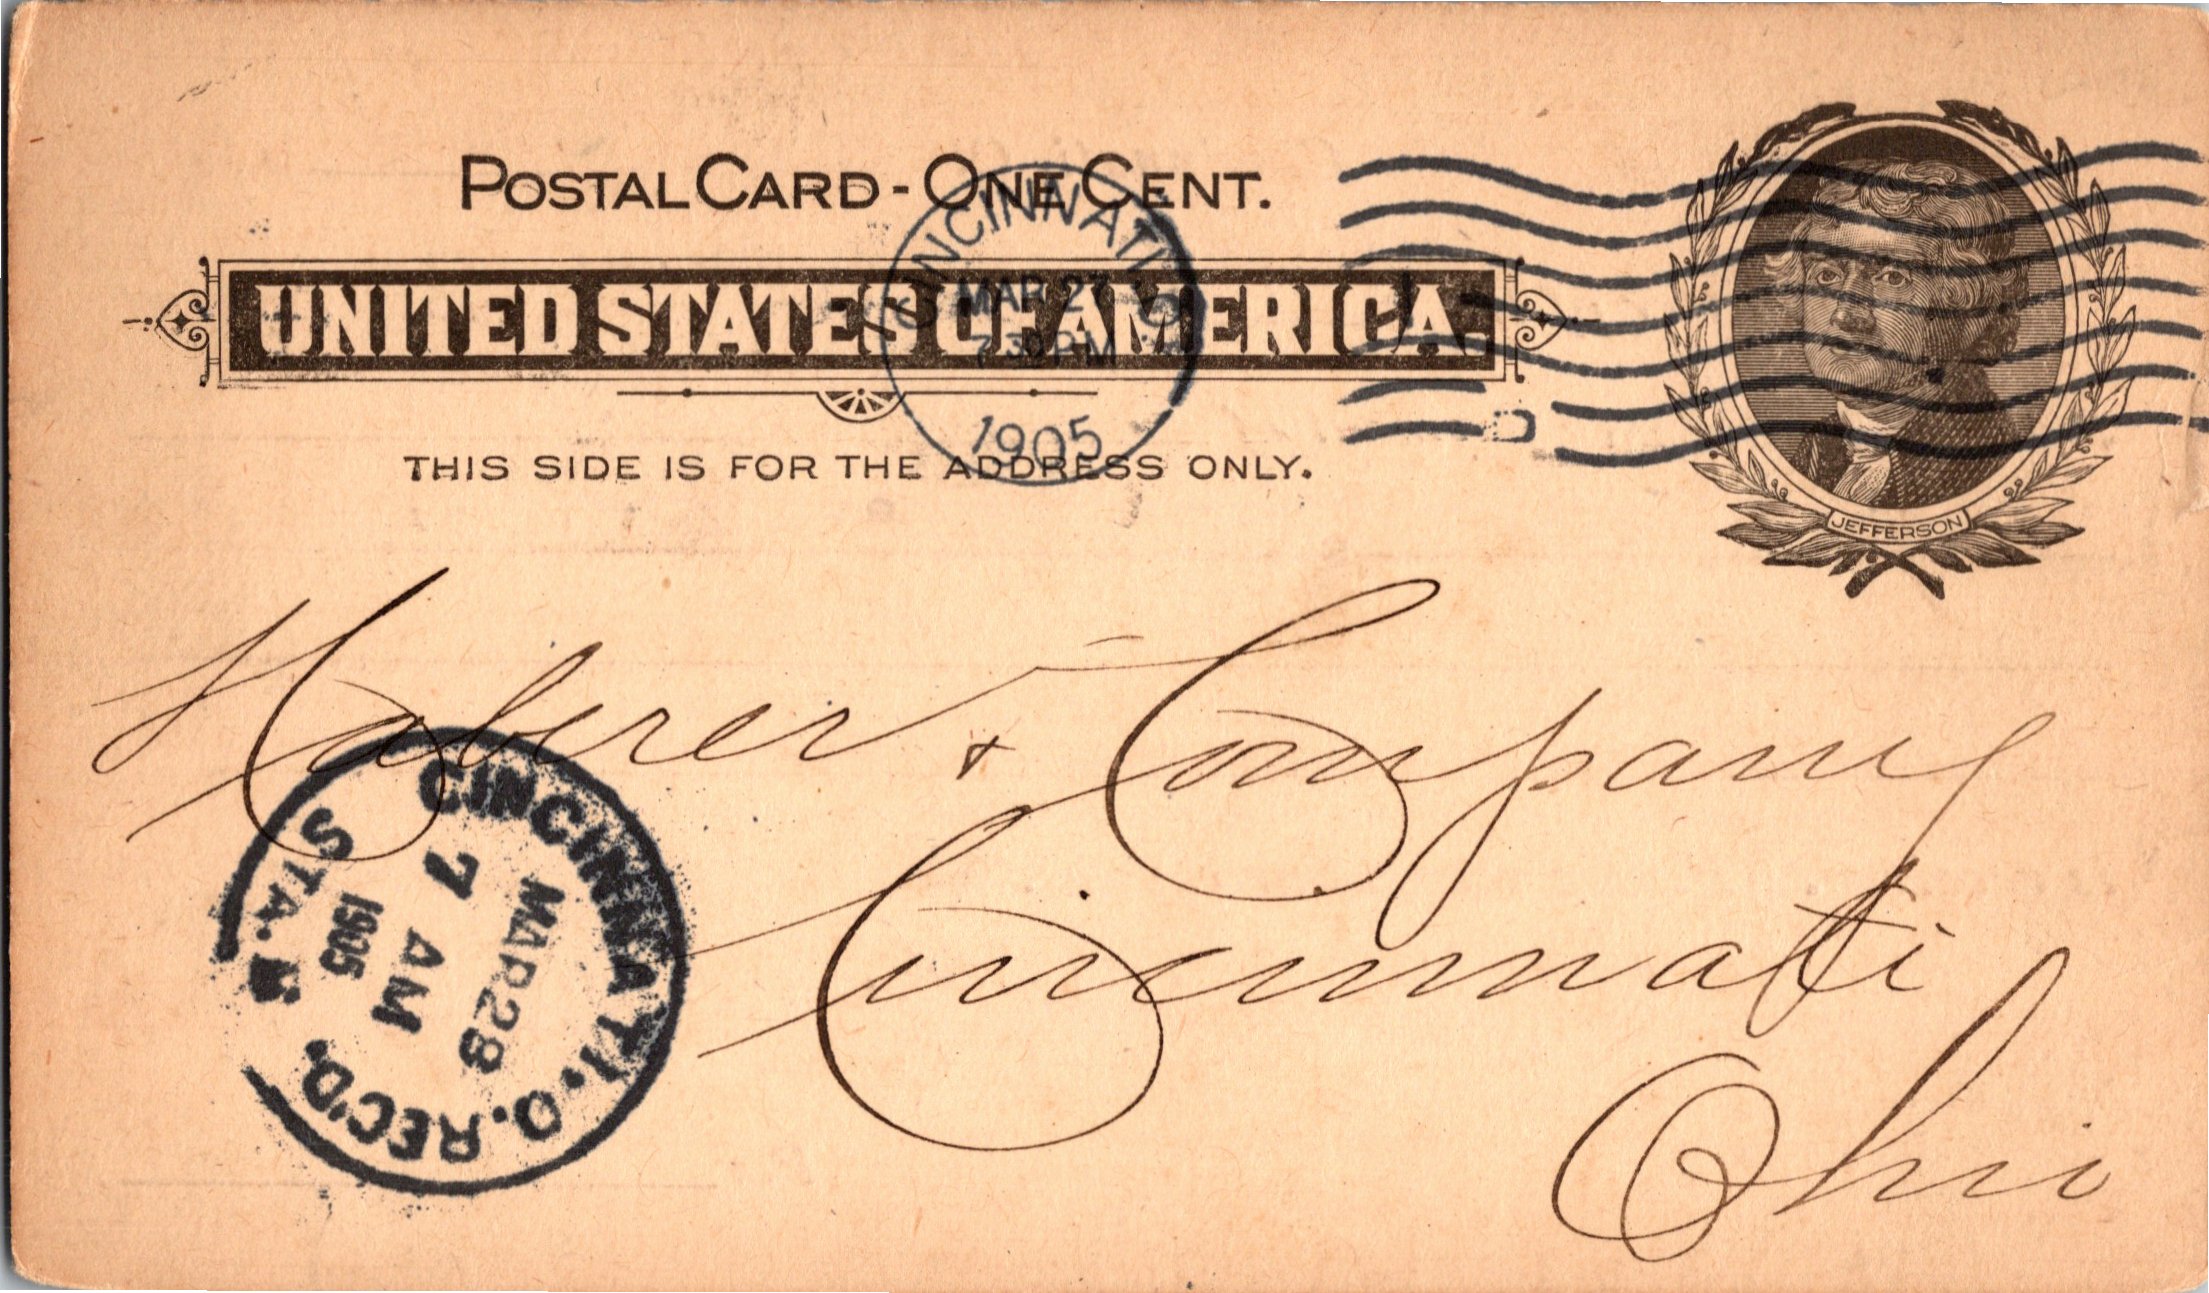 POSTAL CARD - ONE CENT.
UNITED STATES OF AMERICA.
THIS SIDE IS FOR THE ADDRESS ONLY.
JEFFERSON
CINCINNATI
MAR 27
7 30 PM
1905
Haberer & Company
Cincinnati
Ohio
CINCINNATI. O. REC'D.
MAR 28
7 AM
1905
STA.